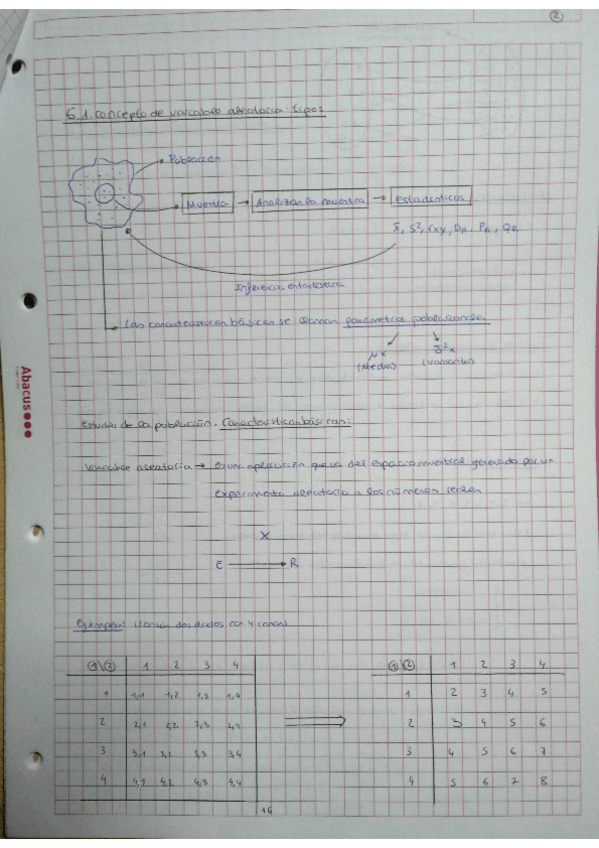 2
6.1. Concepto de variable aleatoria: tipos
Población
Muestra → Analizar la muestra → Estadísticos
x̄, S², rxy, DR, PR, QR
Inferencia estadística
Las características básicas se llaman parámetros poblacionales
μx
(Media)
σ²x
(Varianza)
Abacus
Estudio de la población. Características básicas:
Variable aleatoria → Es una aplicación que va del espacio muestral generada por un
experimento aleatorio a los números reales
X
E → R
Ejemplo: Lanzar dos dados con 4 caras
1\2 1 2 3 4
1 1,1 1,2 1,3 1,4
2 2,1 2,2 2,3 2,4
3 3,1 3,2 3,3 3,4
4 4,1 4,2 4,3 4,4
16
1\2 1 2 3 4
1 2 3 4 5
2 3 4 5 6
3 4 5 6 7
4 5 6 7 8